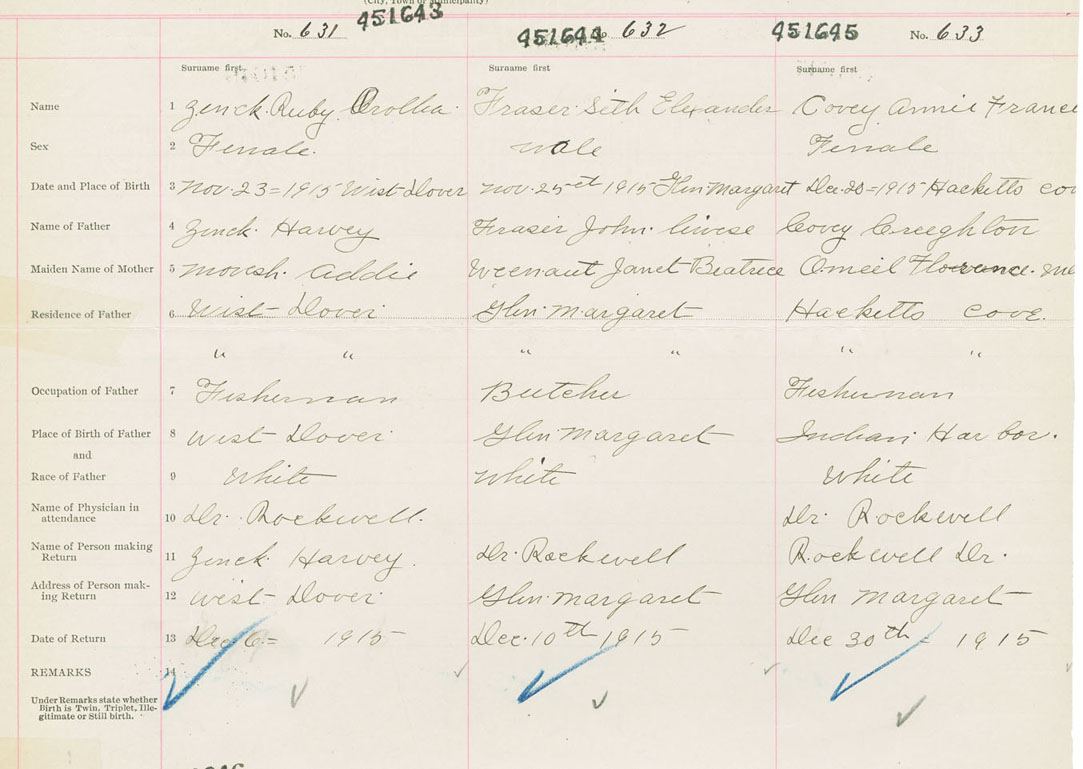 (City, Town or Municipality)
451643
No. 631
451644 No. 632
451645 No. 633
Surname first. Surname first Surname first
Name 1 Zinck Ruby Fraser Seth Elexander Covey Annie France
Sex 2 Female. Male Female
Date and Place of Birth 3 Nov. 23 = 1915 West Dover Nov. 25 1915 Glen Margaret Dec. 20 = 1915 Hacketts Cov
Name of Father 4 Zinck Harvey Fraser John Covey Creeghton
Maiden Name of Mother 5 Addie Janet Beatrice Oneil Florence.
Residence of Father 6 West Dover Glen Margaret Hacketts Cove.
" " " " " "
Occupation of Father 7 Fisherman Butcher Fisherman
Place of Birth of Father 8 West Dover Glen Margaret Indian Harbor.
and
Race of Father 9 White White White
Name of Physician in
attendance 10 Dr. Rockwell. Dr. Rockwell
Name of Person making
Return 11 Zinck Harvey. Dr. Rockwell Rockwell Dr.
Address of Person mak-
ing Return 12 West Dover Glen Margaret Glen Margaret
Date of Return 13 Dec 6 = 1915 Dec. 10th 1915 Dec 30th = 1915
REMARKS 14
Under Remarks state whether
Birth is Twin, Triplet, Ille-
gitimate or Still birth.